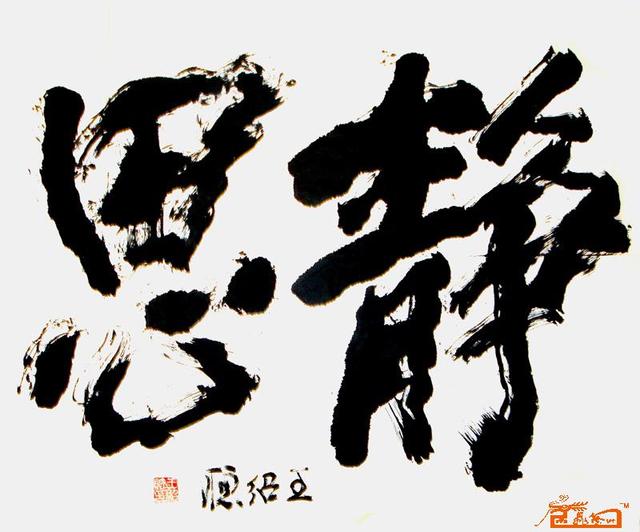 静思
王绍